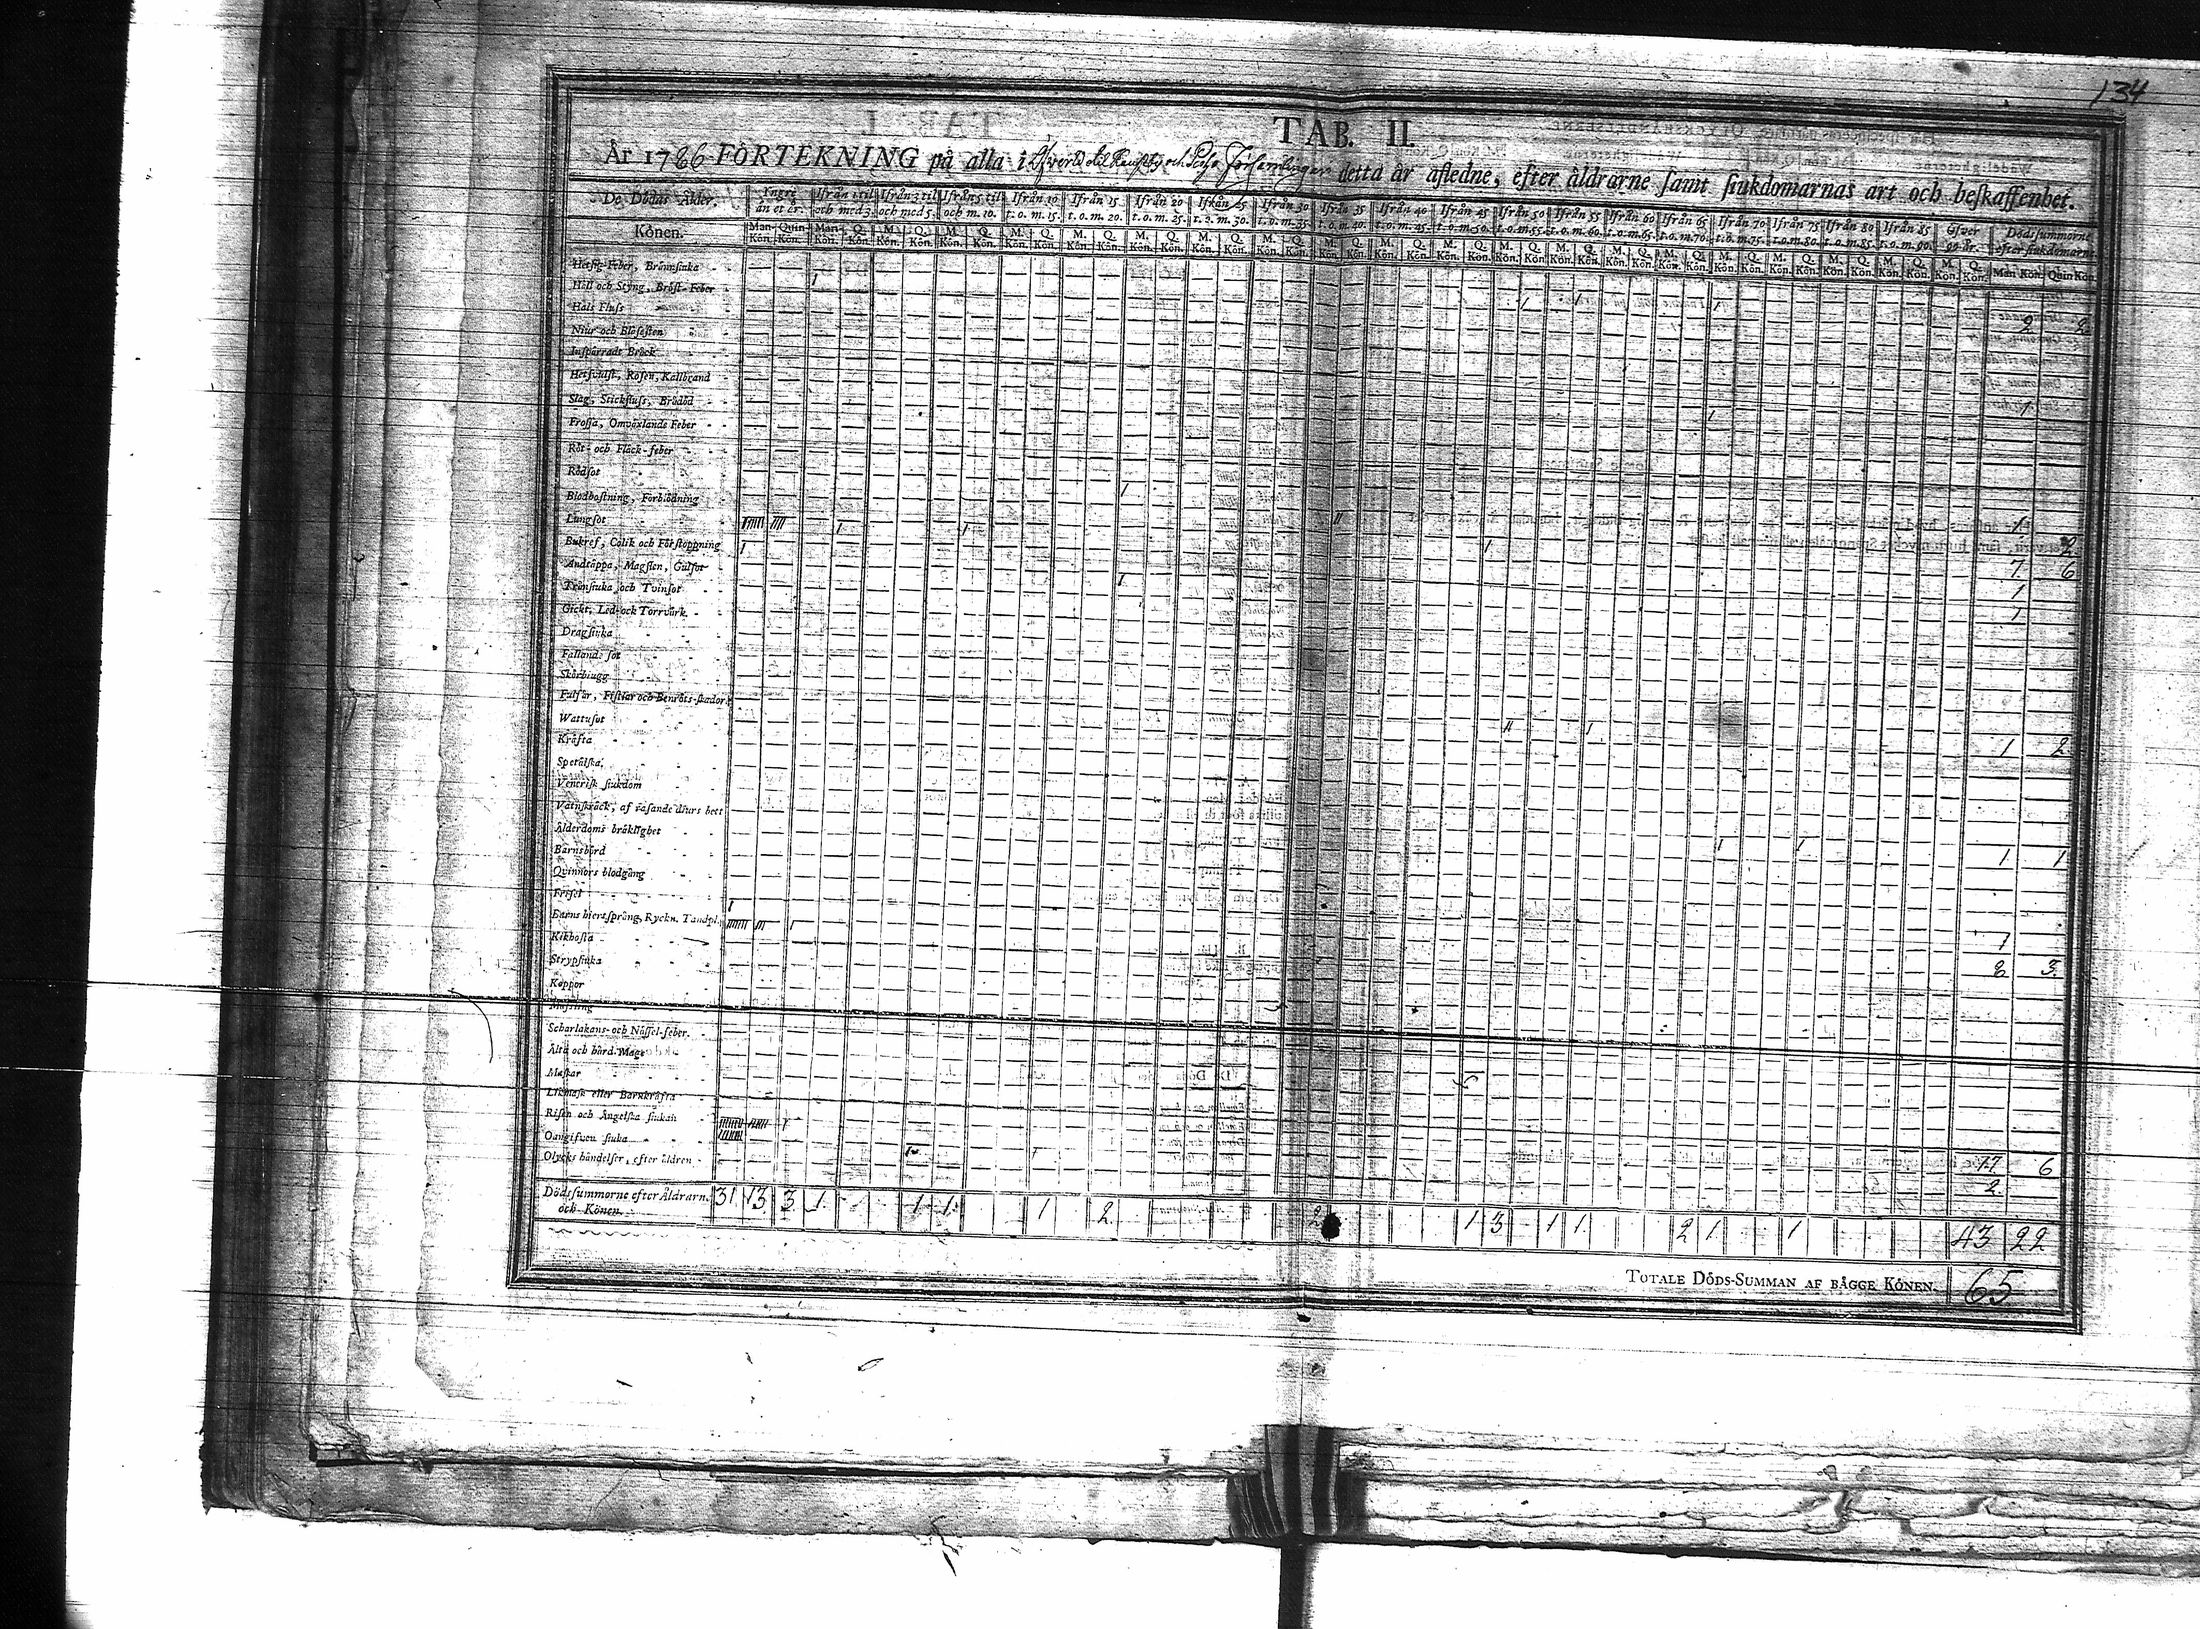 134
TAB. II.
År 1786 FÖRTEKNING på alla i och detta år afledne, efter åldrarne samt siukdomarnas art och beskaffenhet.
De Dödas Ålder. Yngre än et år. Ifrån 1 til och med 3. Ifrån 3 til och med 5. Ifrån 5 til och m. 10. Ifrån 10 t. o. m. 15. Ifrån 15 t. o. m. 20. Ifrån 20 t. o. m. 25. Ifrån 25 t. o. m. 30. Ifrån 30 t. o. m. 35. Ifrån 35 t. o. m. 40. Ifrån 40 t. o. m. 45. Ifrån 45 t. o. m. 50. Ifrån 50 t. o. m. 55. Ifrån 55 t. o. m. 60. Ifrån 60 t. o. m. 65. Ifrån 65 t. o. m. 70. Ifrån 70 t. o. m. 75. Ifrån 75 t. o. m. 80. Ifrån 80 t. o. m. 85. Ifrån 85 t. o. m. 90. Öfver 90 år. Dödssummorne efter siukdomarne
Könen. Man-Kön. Quin-Kön. Man-Kön. Q. Kön. M. Kön. Q. Kön. M. Kön. Q. Kön. M. Kön. Q. Kön. M. Kön. Q. Kön. M. Kön. Q. Kön. M. Kön. Q. Kön. M. Kön. Q. Kön. M. Kön. Q. Kön. M. Kön. Q. Kön. M. Kön. Q. Kön. M. Kön. Q. Kön. M. Kön. Q. Kön. M. Kön. Q. Kön. M. Kön. Q. Kön. M. Kön. Q. Kön. M. Kön. Q. Kön. M. Kön. Q. Kön. M. Kön. Q. Kön. M. Kön. Q. Kön. Man Kön. Quin Kön.
Hetsig-Feber, Brännsiuka
Håll och Styng, Bröst-Feber 1 1 1 1 2 2
Hals Fluss
Niur och Blåsesten
Inspärradt Bråck
Hetsvulst, Rosen, Kallbrand
Slag, Stickfluss, Brådöd 1 1
Frossa, Omväxlande Feber
Röt- och Fläck-feber
Rödsot
Blodhostning, Förblödning 1 1
Lungsot 1 1 7 6
Bukref, Colik och Förstoppning 1 1 1
Andtäppa, Magsten, Gulsot 1 1
Tränsiuka och Tvinsot
Gickt, Led-ock Torrvärk
Dragsiuka
Fallande sot
Skörbiugg
Fulsår, Fistlar och Benröts-skador
Wattusot 1 1 2
Kräfta
Spetälska
Venerisk siukdom
Vatnskräck, af rasande diurs bett
Ålderdoms bräklighet 1 1 1 1
Barnsbörd
Qvinnors blodgång
Frisel 1 1
Barns hiertsprång, Ryckn. Tandpl. 1 8 3
Kikhosta
Strypsiuka
Koppor
Mässling
Scharlakans- och Nässel-feber.
Älta och hård Mage
Maskar
Likmask eller Barnkräfta
Risen och Ängelska siukan
Oangifven siuka 1 17 6
Olycks händelser, efter åldren 1 1 2
Dödssummorne efter Åldrarn. och Könen. 31 13 3 1 1 1 1 2 2 1 3 1 1 2 1 1 43 22
TOTALE DÖDS-SUMMAN AF BÅGGE KÖNEN. 65